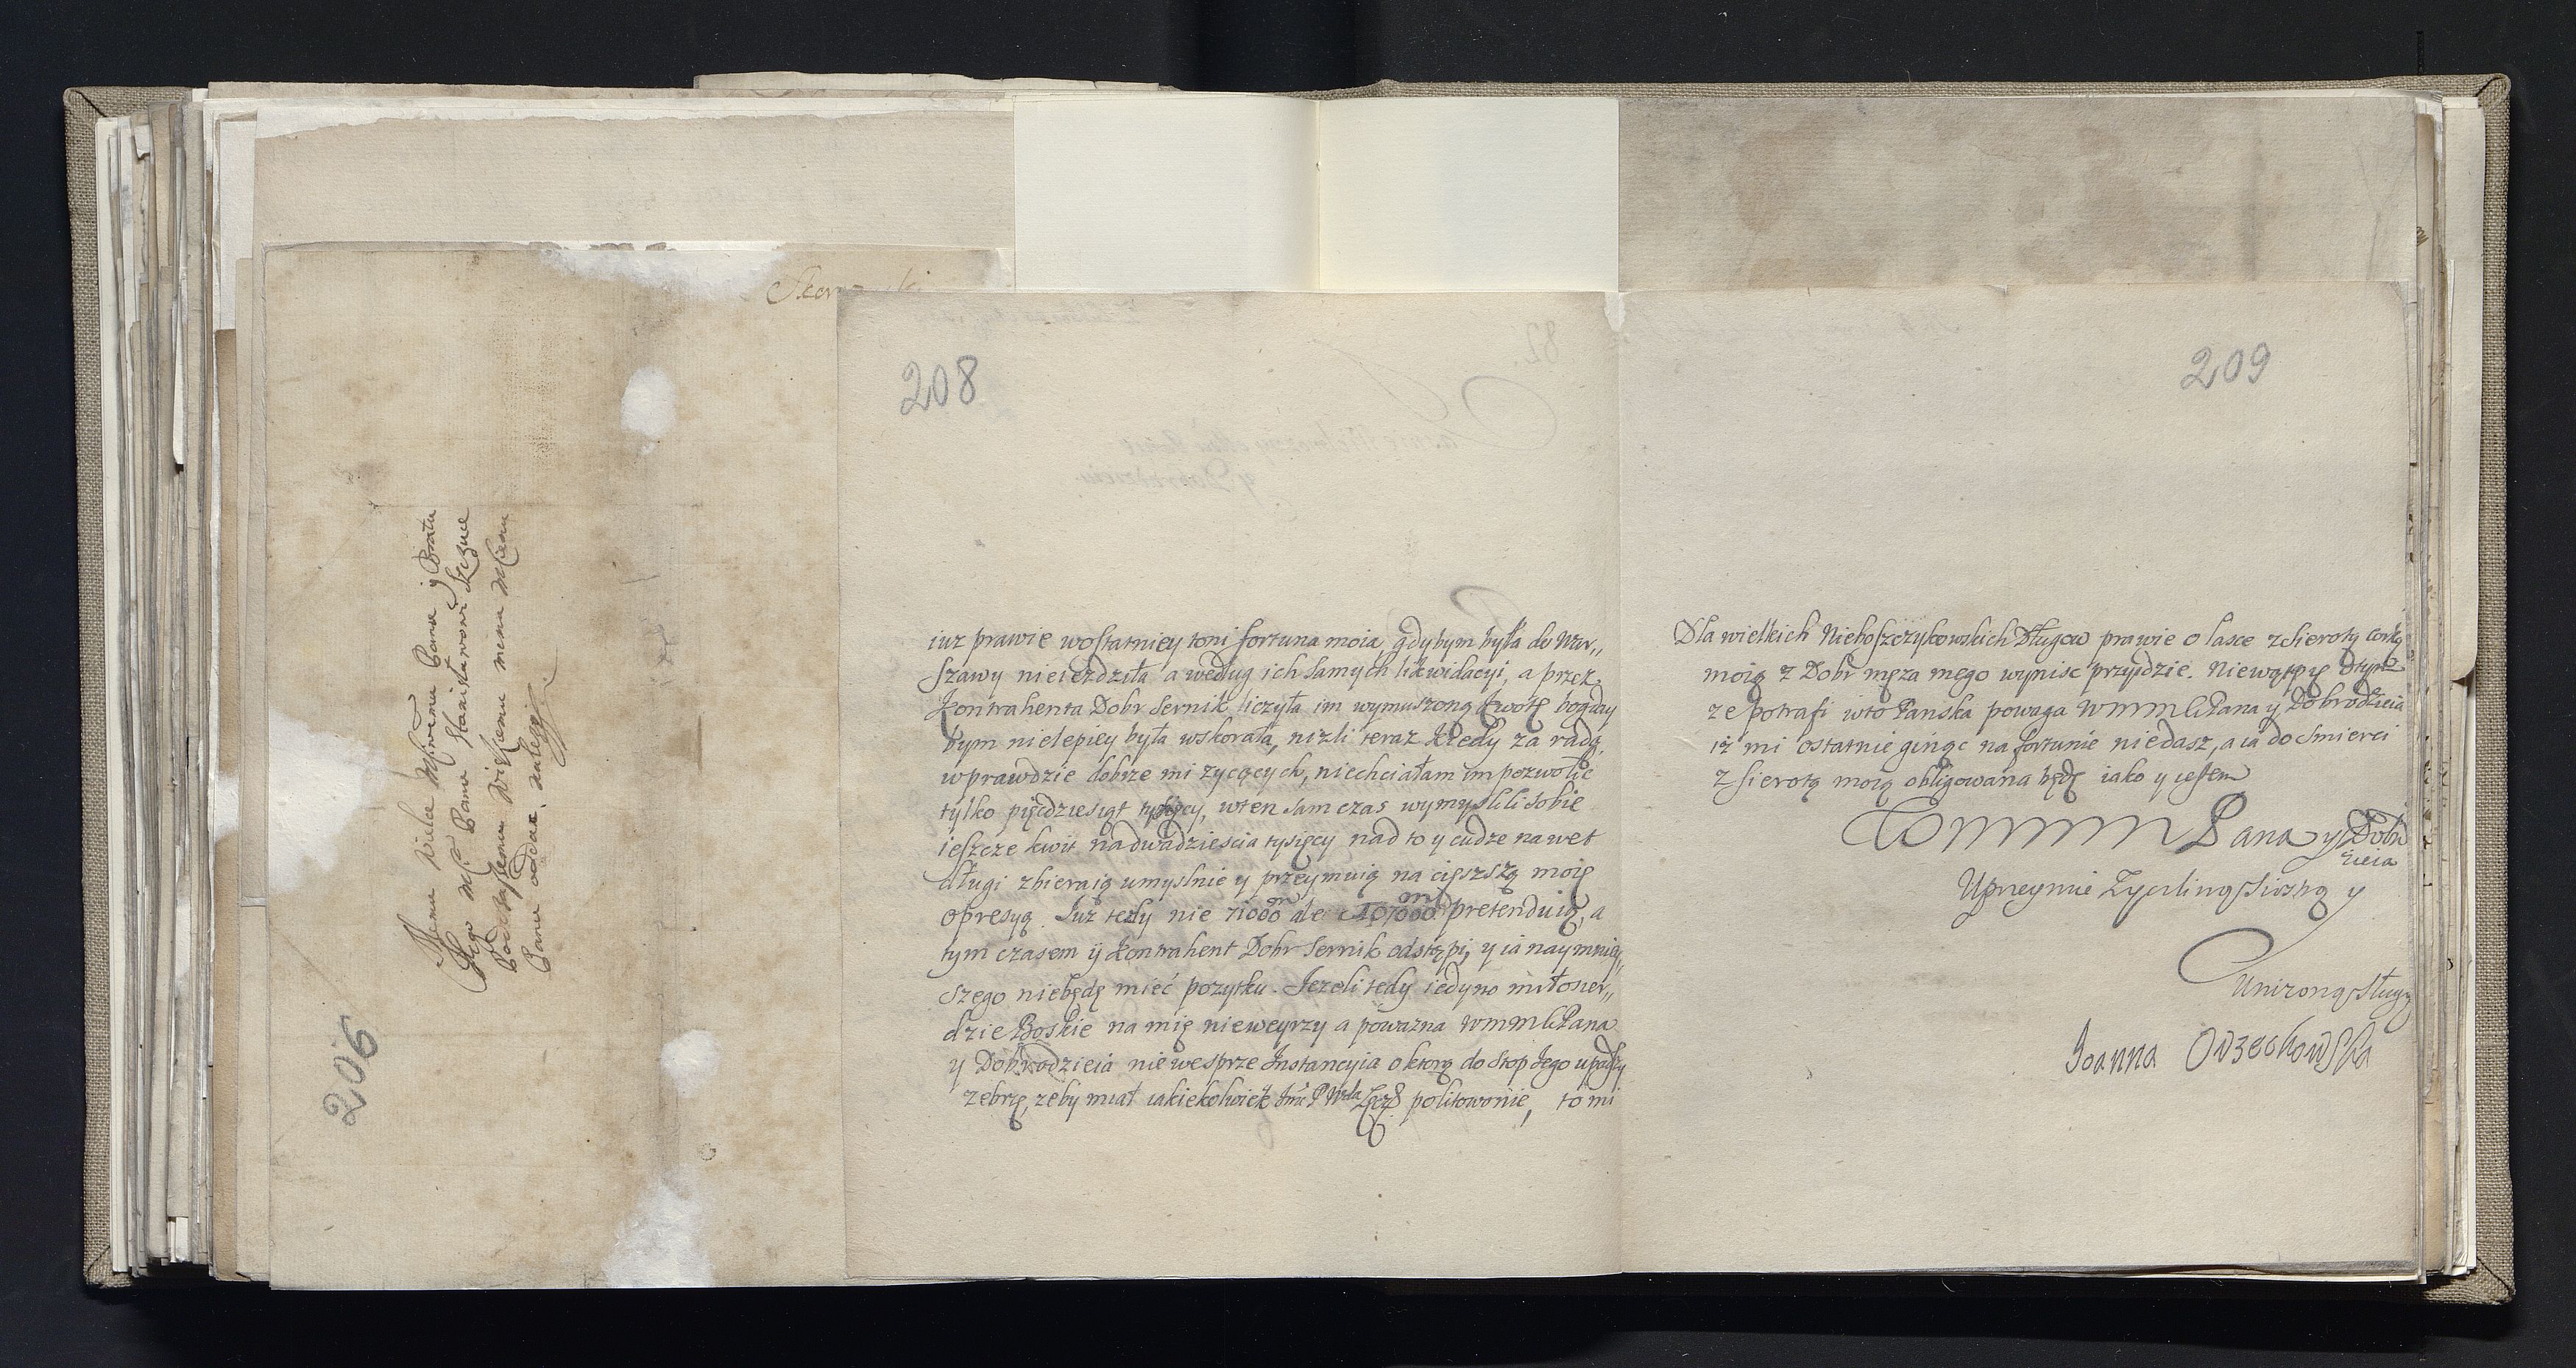 206
Panu y Bratu
Panu Stanisławowi Szczuce
memu
Panu oddać należy
208
iuz prawie wostatniey toni fortuna moia, gdybym była do War„
szawy nieiezdziła a według ich samych likwidacyi, a przez
Kontrahenta Dobr Sernik liczyła im wymuszoną kwotę bogday
bym nielepiey była wskorała, nizli teraz kiedy za radą
wprawdzie dobrze mi zyczących, niechciałam im pozwolic
tylko pięcdziesiąt tysięcy, wten sam czas wymyslili sobie
ieszcze kwit nadwadziescia tysięcy nad to y cudze nawet
długi zbieraią umyslnie y przeymuią na cięszszą moię
opresyą. Juz tedy nie 71000 ale 107000 pretenduią, a
tym czasem y kontrahent Dobr Sernik odstąpi, y ia naymniey„
szego niebędę mieć pozytku. Jezeli tedy iedyno miłosier„
dzie Boskie na mię nieweyrzy a powazna WMMMPana
y Dobrodzieia nie wesprze Instancyia o ktorą do stop Jego upadszy
zebrzę, zeby miał iakiekolwiek politowonie, to mi
209
Dla wielkich Niehoszczykowskich Długow prawie o lasce zsierotą corką
moią z Dobr męza mego wyniśc przyidzie. Niewątpię
ze potrafi wto Panska powaga WMMMPana y Dobrodzieia
iż mi ostatnie ginąc na fortunie niedasz, a ia do smierci
zsierotą moią obligowana będę iako y iestem
WMMMM Pana y Dobro
zieia
Upreymie Zyczliwą Siostrą y
Unizoną Sługą
Joanna Orzechowska